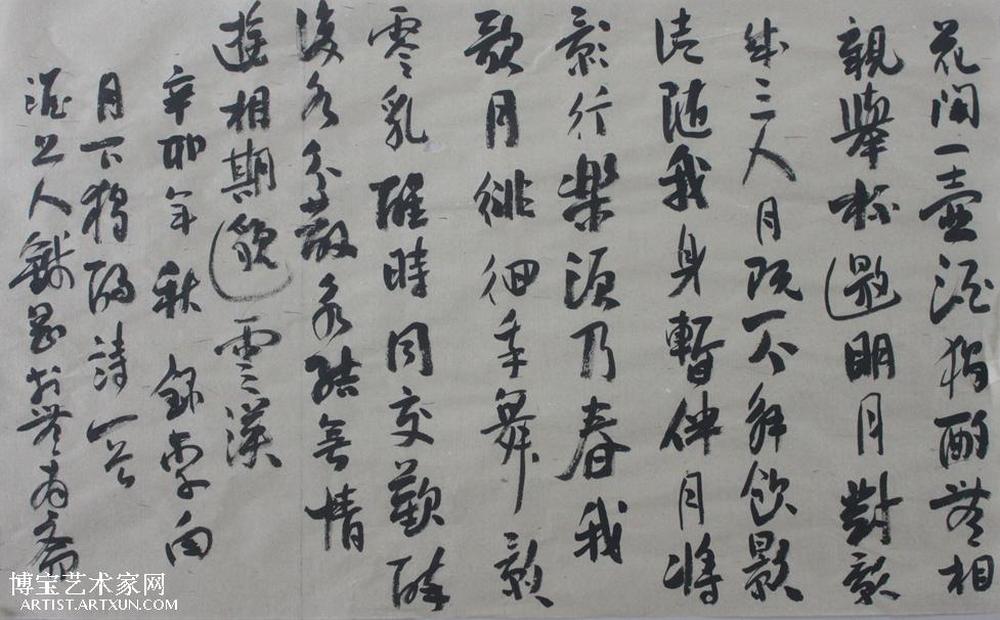 花間一壺酒獨酌無相
親舉杯邀明月對影
成三人月既不解飲影
徒隨我身暫伴月將
影行樂須及春我
歌月徘徊我舞影
零乱醒時同交歡醉
後各分散永結無情
遊相期邈雲漢
辛卯年秋 錄李白
月下獨酌詩一首
上人
博宝艺术家网
ARTIST.ARTXUN.COM